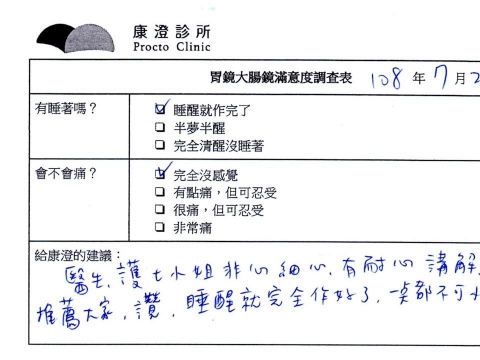 康澄診所
Procto Clinic
胃鏡大腸鏡滿意度調查表 108年7月2
有睡著嗎?
☑ 睡醒就作完了
☐ 半夢半醒
☐ 完全清醒沒睡著
會不會痛?
☑ 完全沒感覺
☐ 有點痛,但可忍受
☐ 很痛,但可忍受
☐ 非常痛
給康澄的建議:
醫生、護士小姐非心細心,有耐心講解,
推薦大家,讚,睡醒就完全作好了,一點都不可